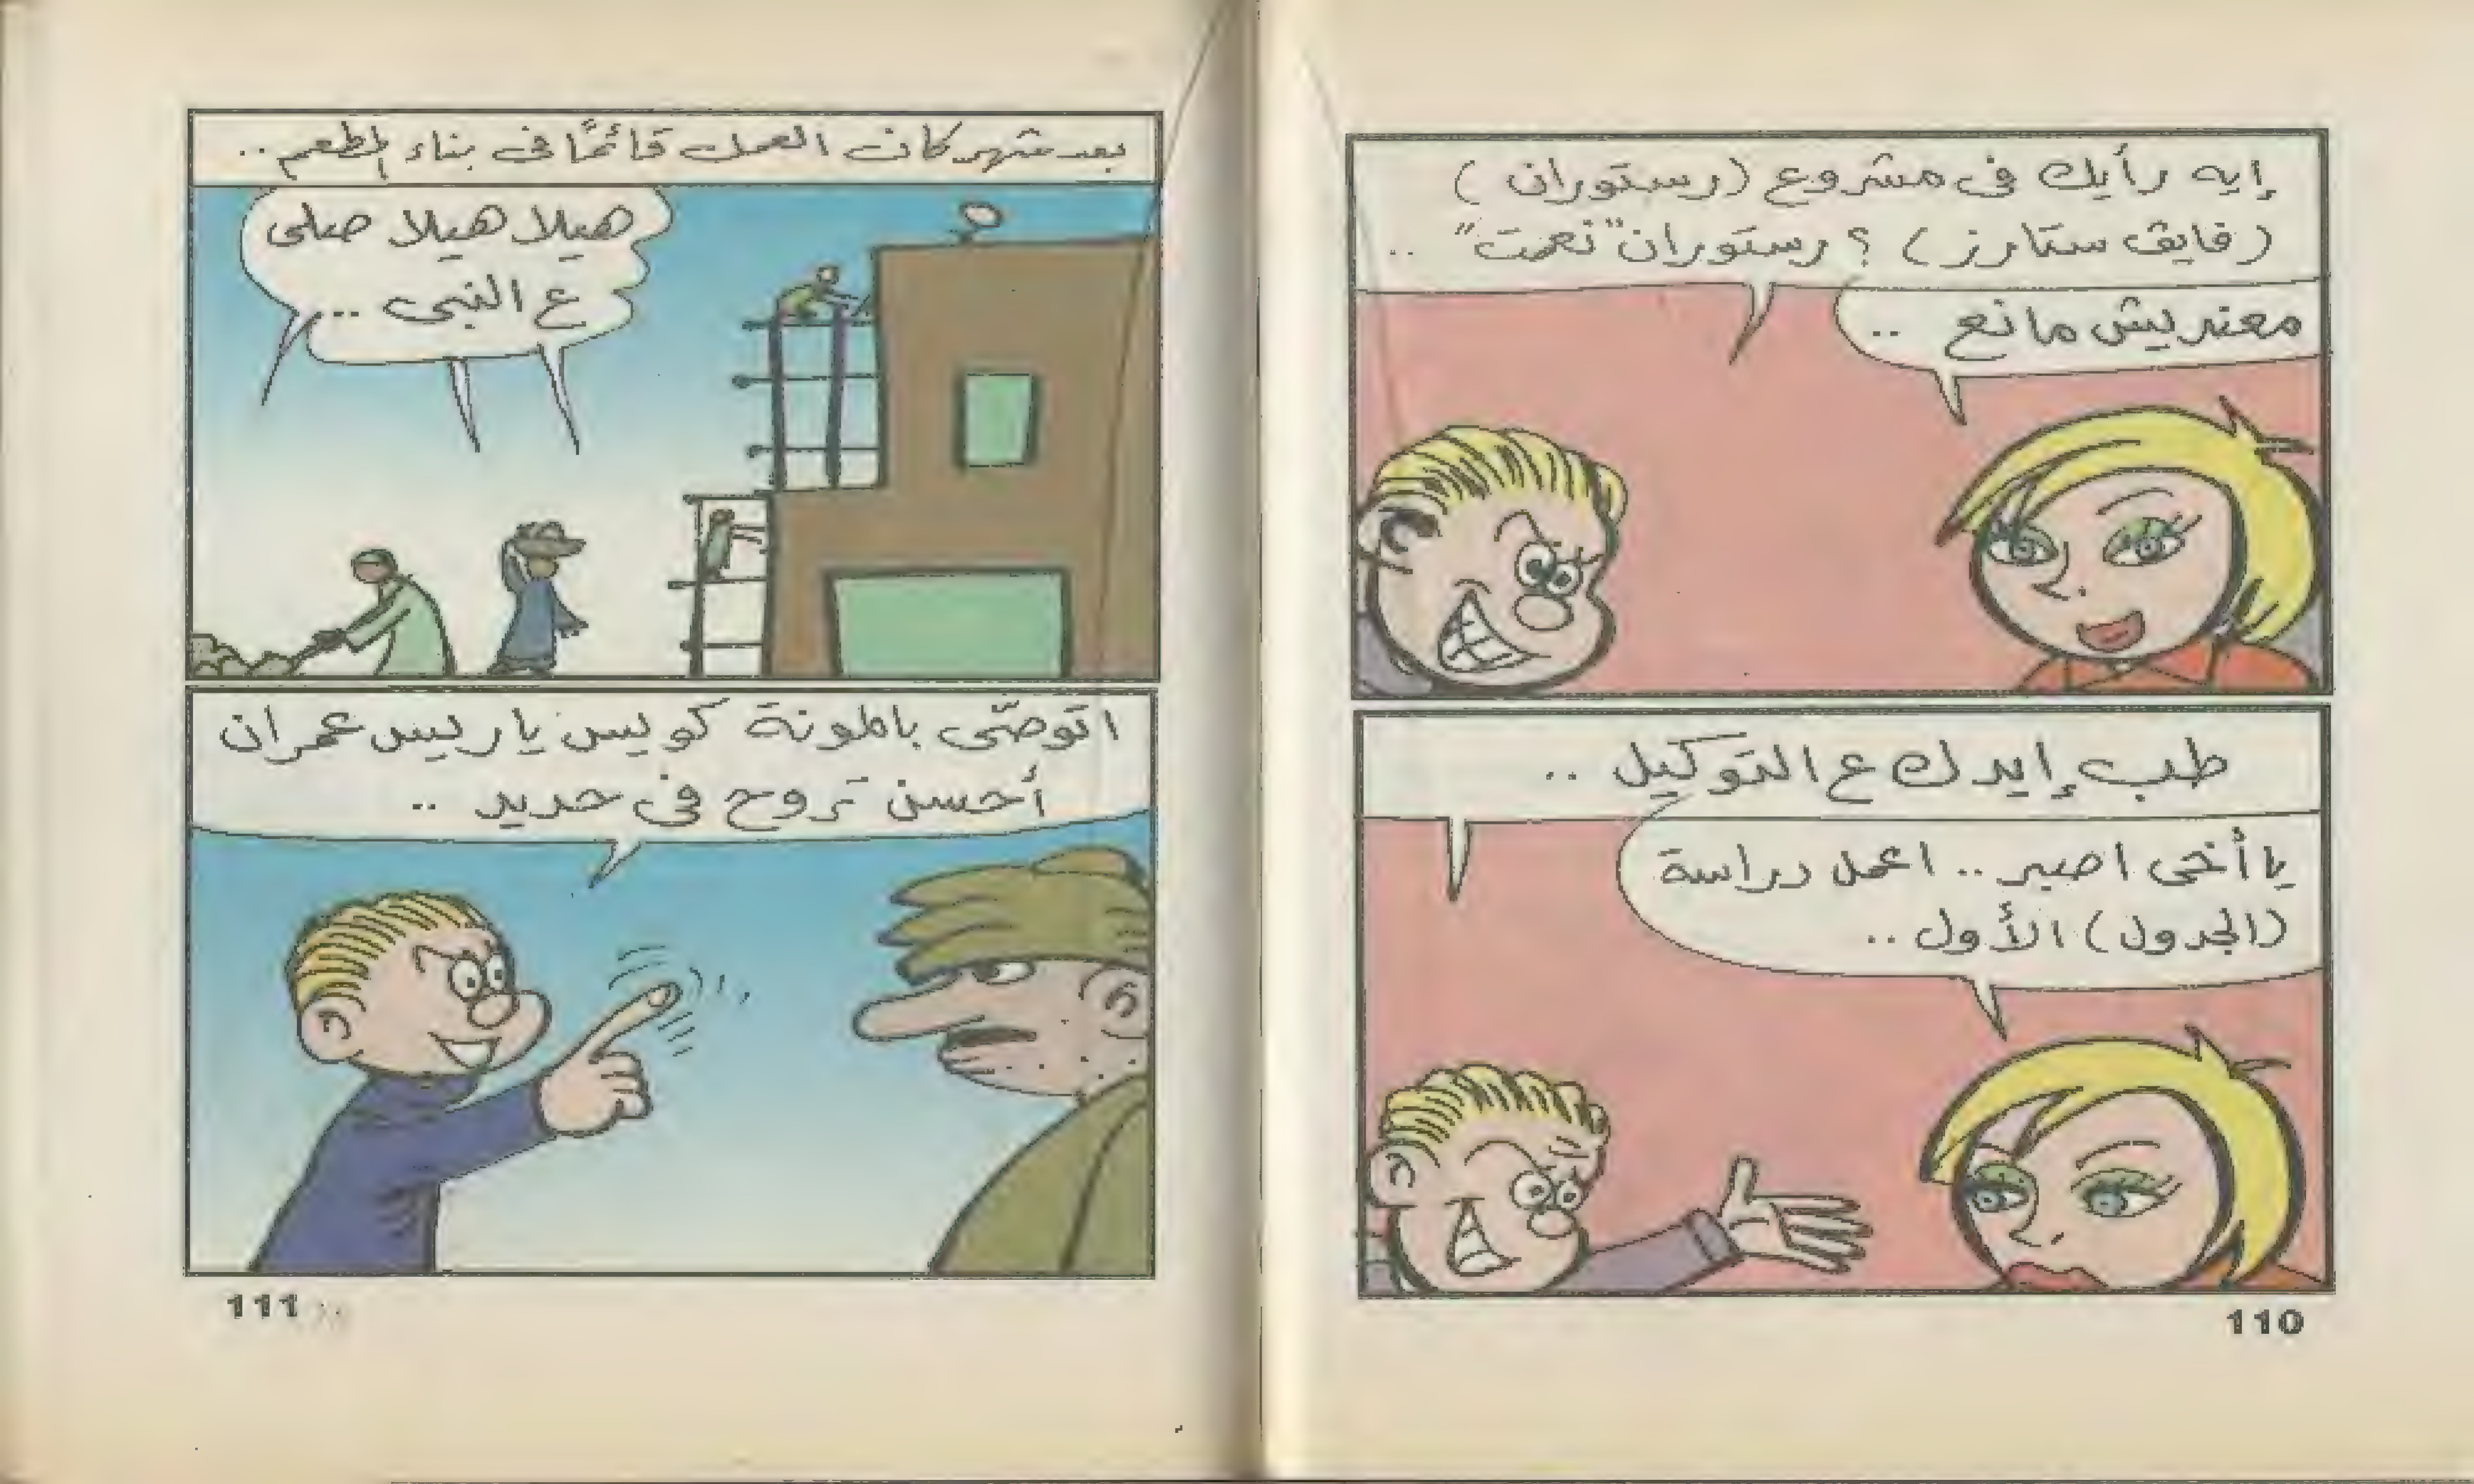 إيه رأيك فى مشروع (رستوران)
(فايف ستارز) ؟ رستوران "نعمت" ..
معنديش مانع ..
طب إيدك ع التوكيل ..
يا أخى اصبر .. اعمل دراسة
(الجدول) الأول ..
110
بعد شهر كان العمل قائمًا فى بناء المطعم ..
هيلا هيلا صلى
ع النبى ...
اتوصّى بالمونة كويس يا ريس عمران
أحسن تروح فى حديد ..
111